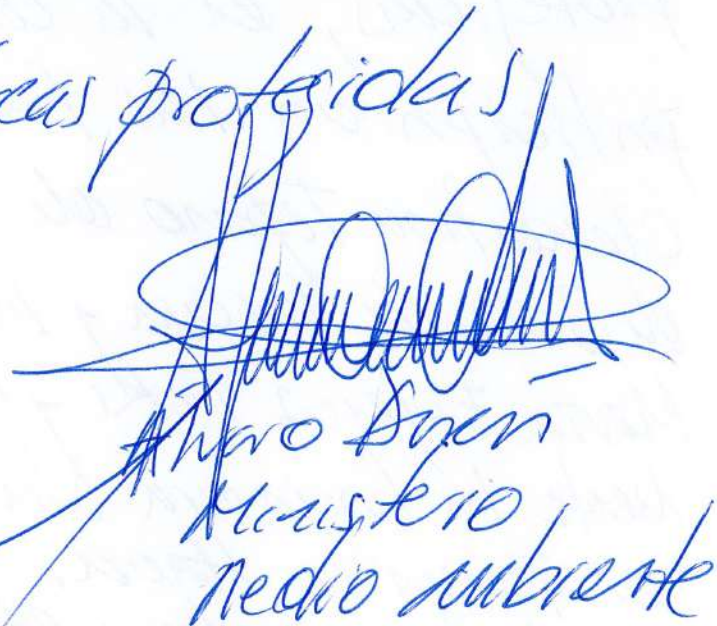 cas protegidas
Alvaro
Ministerio
Medio Ambiente